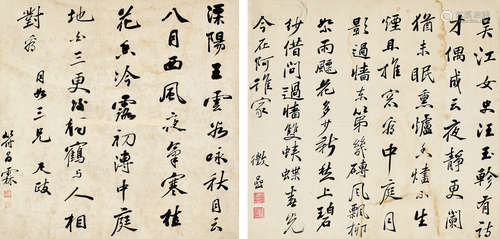 吳江女史汪玉軫有詩
才偶成云夜靜更闌
猶未眠熏爐香燼不生
煙且推窗看中庭月
影過牆東第幾磚風飄柳
絮雨飄花多少新愁上碧
紗借問過牆雙蛺蝶春光
今在阿誰家
溧陽王雲谷咏秋月云
八月西風夜氣寒桂
花香冷露初漙中庭
地白三更後惟鶴与人相
對看 三兄 政
霖